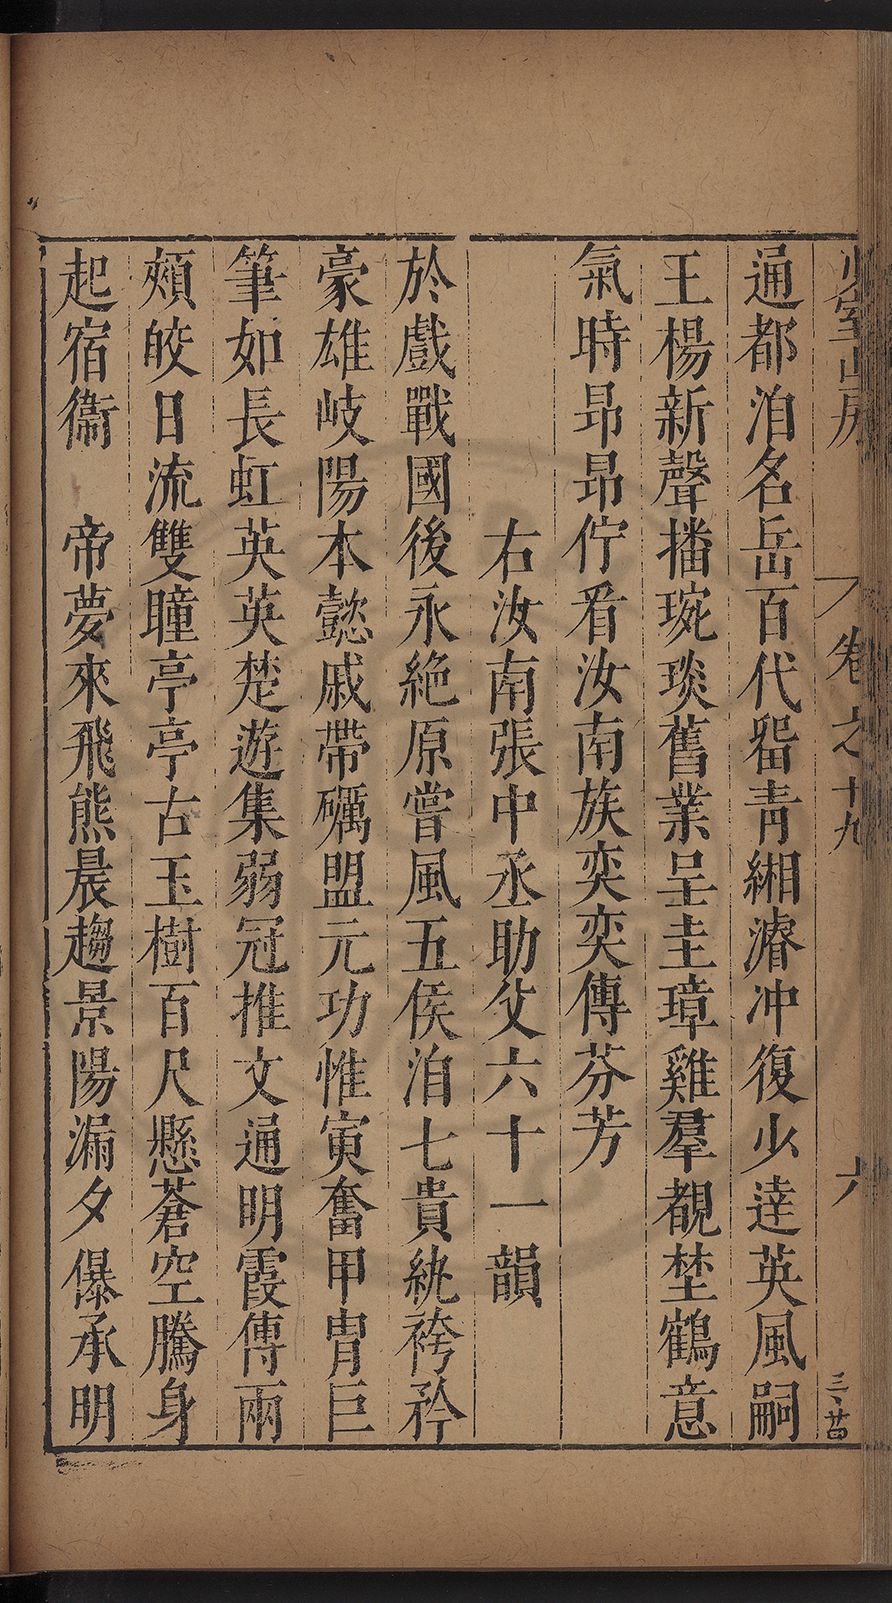 少室山房　卷之十九　六　三、苗
通都洎名岳百代畱青緗濬冲復少達英風嗣
王楊新聲播琬琰舊業呈圭璋雞羣覩埜鶴意
氣時昂昂佇看汝南族奕奕傳芬芳
右汝南張中丞助父六十一韻
於戲戰國後永絶原嘗風五侯洎七貴紈袴矜
豪雄岐陽本懿戚帶礪盟元功惟寅奮甲胄巨
筆如長虹英英楚遊集弱冠推文通明霞傳兩
頰皎日流雙瞳亭亭古玉樹百尺懸蒼空騰身
起宿衞　帝夢來飛熊晨趨景陽漏夕儤承明